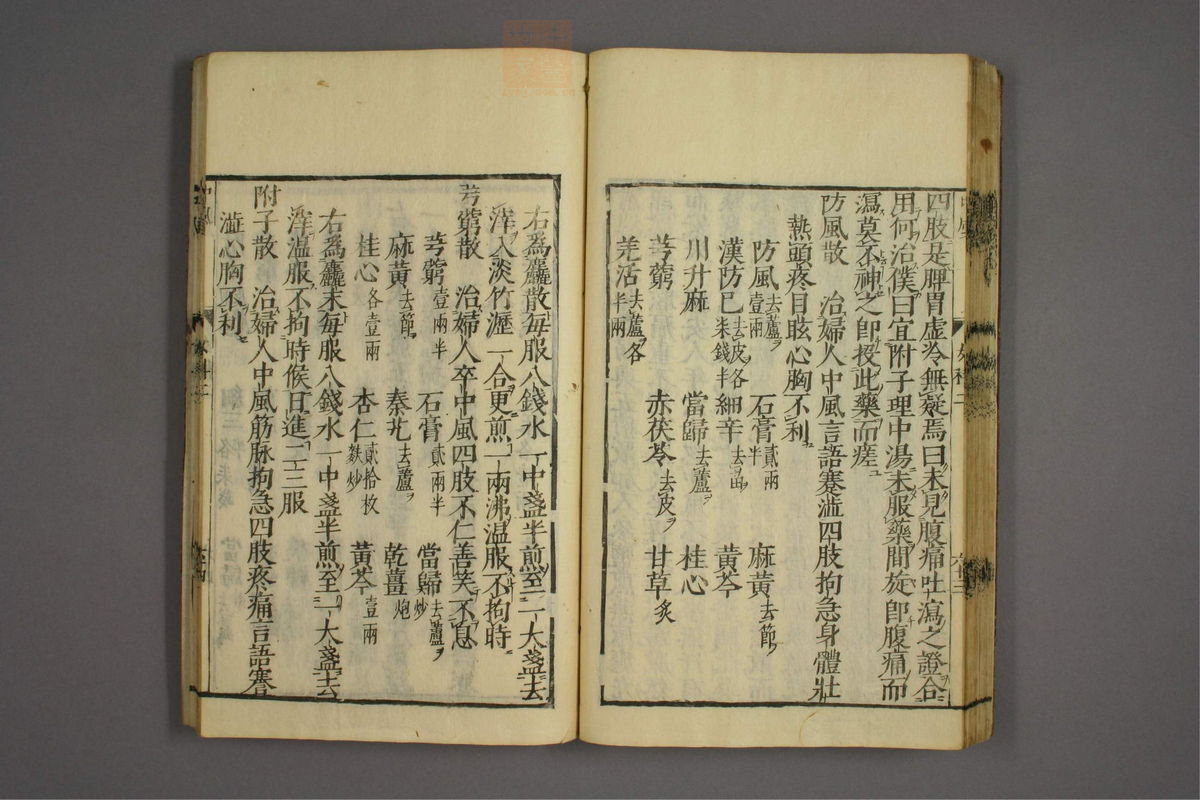 四肢是脾胃虛冷無疑焉曰未見腹痛吐瀉之證合
用何治僕曰宜附子理中湯未服藥間旋卽腹痛而
瀉莫不神之卽投此藥而瘥
防風散　治婦人中風言語蹇澁四肢拘急身體壯
熱頭疼目眩心胸不利
防風去蘆壹兩　石膏貳兩半　麻黃去節
漢防已去皮各柒錢半　細辛去苗　黃芩
川升麻　當歸去蘆　桂心
芎藭　赤茯苓去皮　甘草炙
羌活去蘆各半兩
右爲麤散每服八錢水一中盞半煎至一大盞去
滓入淡竹瀝一合更煎一兩沸溫服不拘時
芎藭散　治婦人卒中風四肢不仁善笑不息
芎藭壹兩半　石膏貳兩半　當歸去蘆炒
麻黃去節　秦艽去蘆　乾薑炮
桂心各壹兩　杏仁貳拾枚麩炒　黃芩壹兩
右爲麤末每服八錢水一中盞半煎至一大盞去
滓溫服不拘時候日進二三服
附子散　治婦人中風筋脉拘急四肢疼痛言語蹇
澁心胸不利